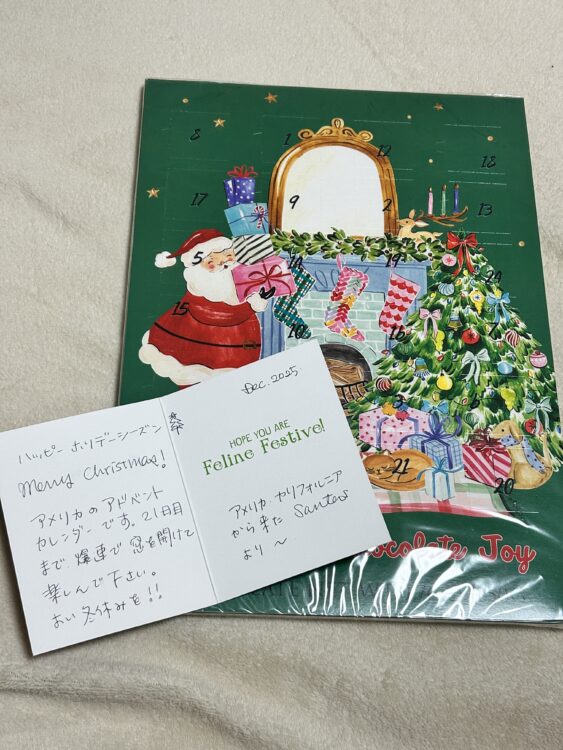 8
1
12
18
17
9
2
13
5
14
19
24
15
10
16
7
3
21
20
Chocolate Joy
ハッピーホリデーシーズン
Merry Christmas!
アメリカのアドベント
カレンダーです。21日目
まで 爆速で 窓を開けて
楽しんで下さい。
よい冬休みを!!
Dec. 2025
HOPE YOU ARE
Feline Festive!
アメリカ カリフォルニア
から来た Santas
より〜